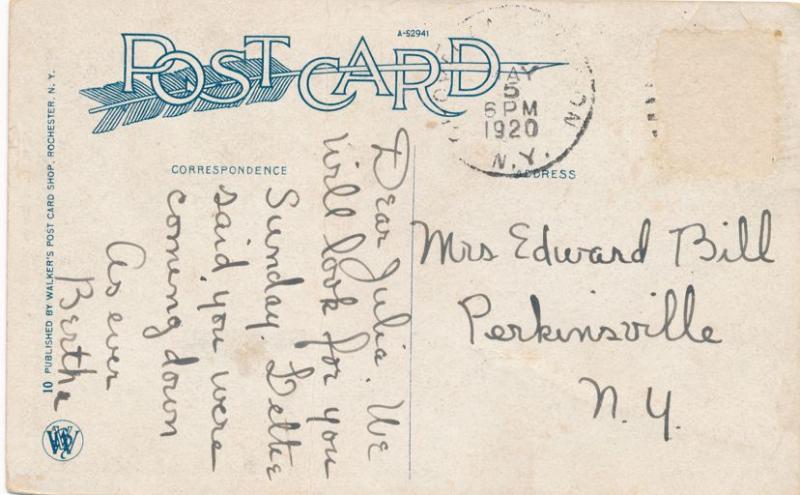 A-52941
POST CARD
MAY
5
6 PM
1920
N.Y.
CORRESPONDENCE
ADDRESS
Dear Julia. We
will look for you
Sunday. Lettie
said you were
coming down
As ever
Bertha
Mrs Edward Bill
Perkinsville
N.Y.
10 PUBLISHED BY WALKER'S POST CARD SHOP, ROCHESTER, N. Y.